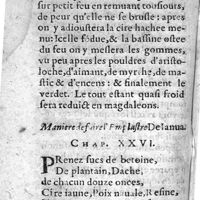 sur petit feu en remuant tousiours,
de peur qu'elle ne se brusle: apres
on y adioustera la cire hachee me-
nu: Icelle fōdue, & la bassine ostee
du feu on y meslera les gommes,
vn peu apres les pouldres d'aristo-
loche, d'aimant, de myrrhe, de ma-
stic & d'encens: & finalement le
verdet. Le tout estant quasi froid
sera reduit en magdaleons.
Maniere de faire l'Emplastre De Ianua.
CHAP. XXVI.
PRenez sucs de betoine,
De plantain, Dache,
de chacun douze onces,
Cire iaune, Poix nauale, Resine,